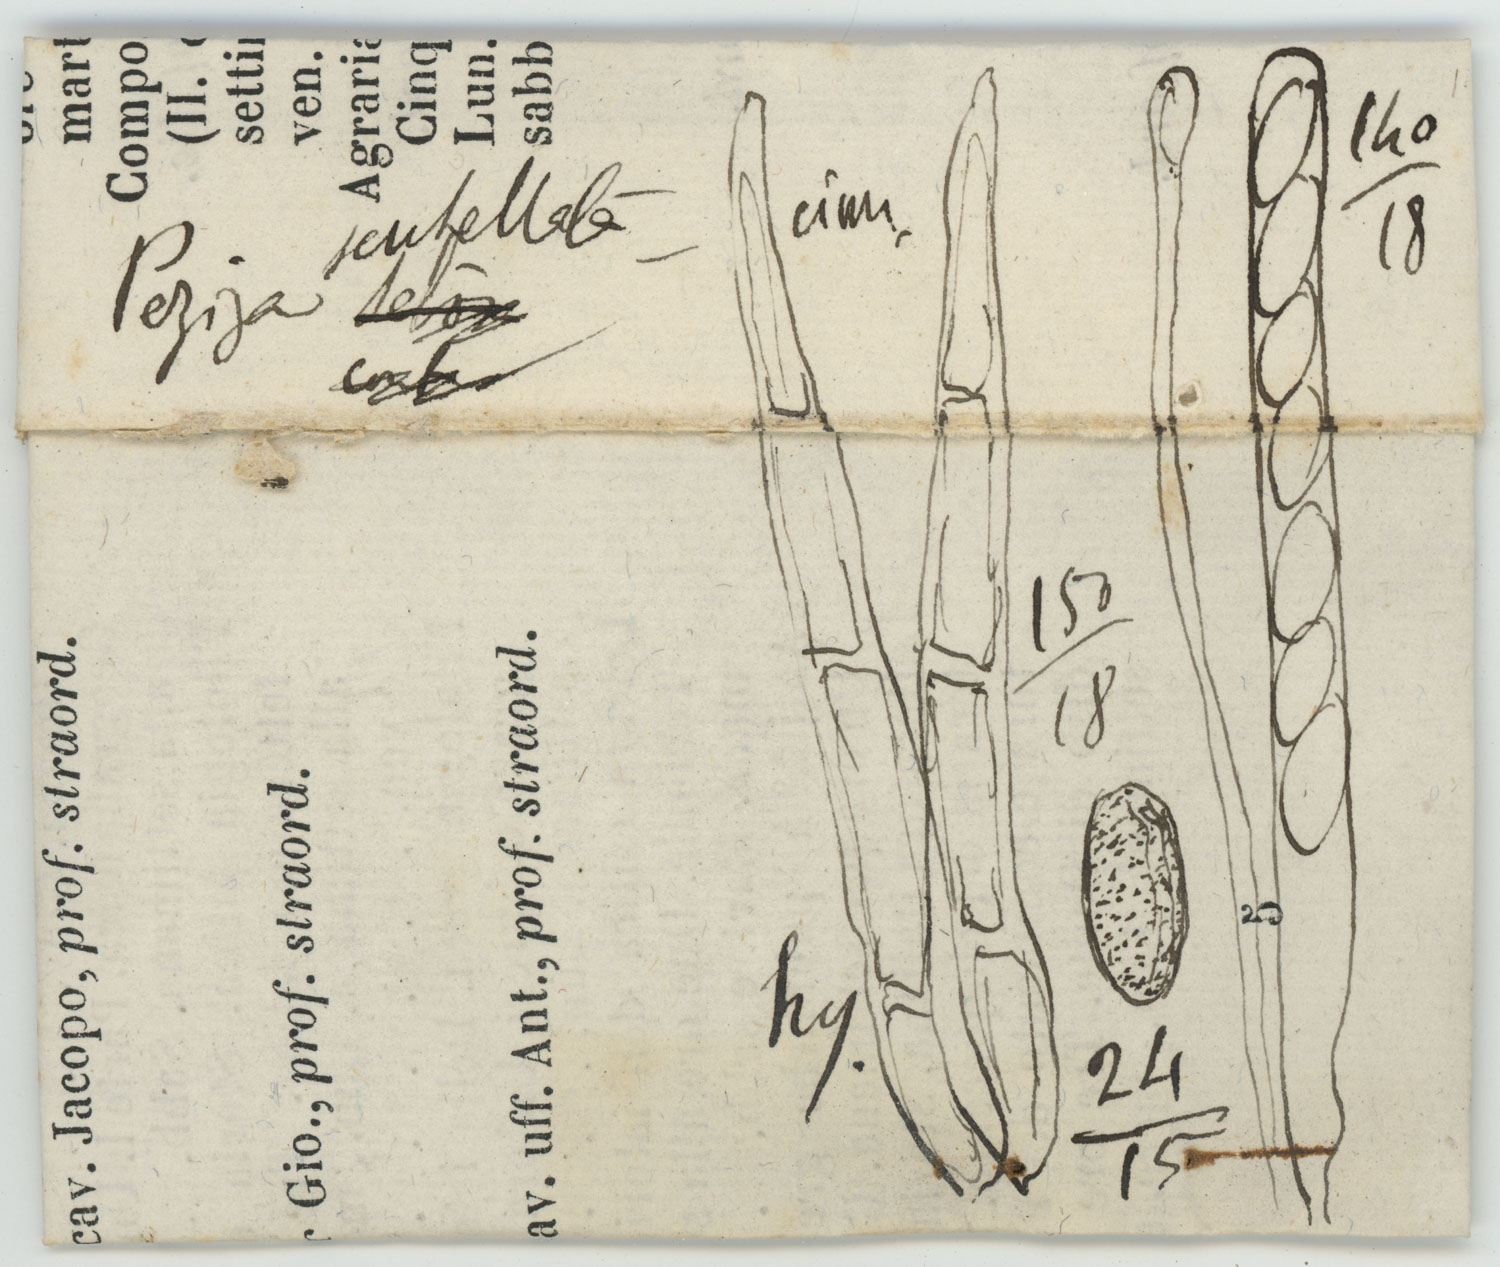 mart
Compo
(II.
settii
ven.
Agraria
Cinq
Lun.
sabb
Peziza scutellata
cinn.
140
18
150
18
hy.
24
15
5
cav. Jacopo, prof. straord.
Gio., prof. straord.
av. uff. Ant., prof. straord.